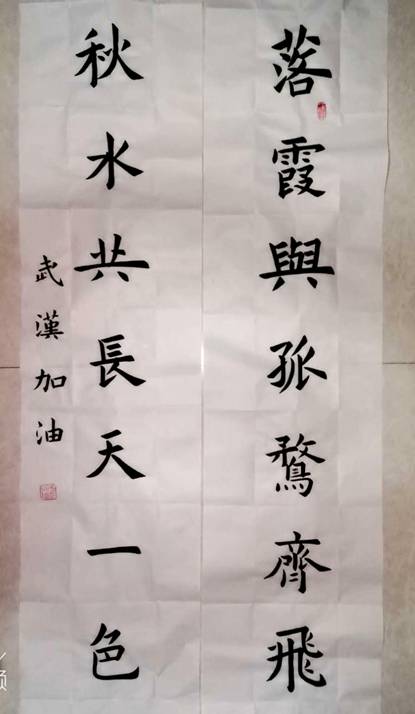 落霞與孤鶩齊飛
秋水共長天一色
武漢加油